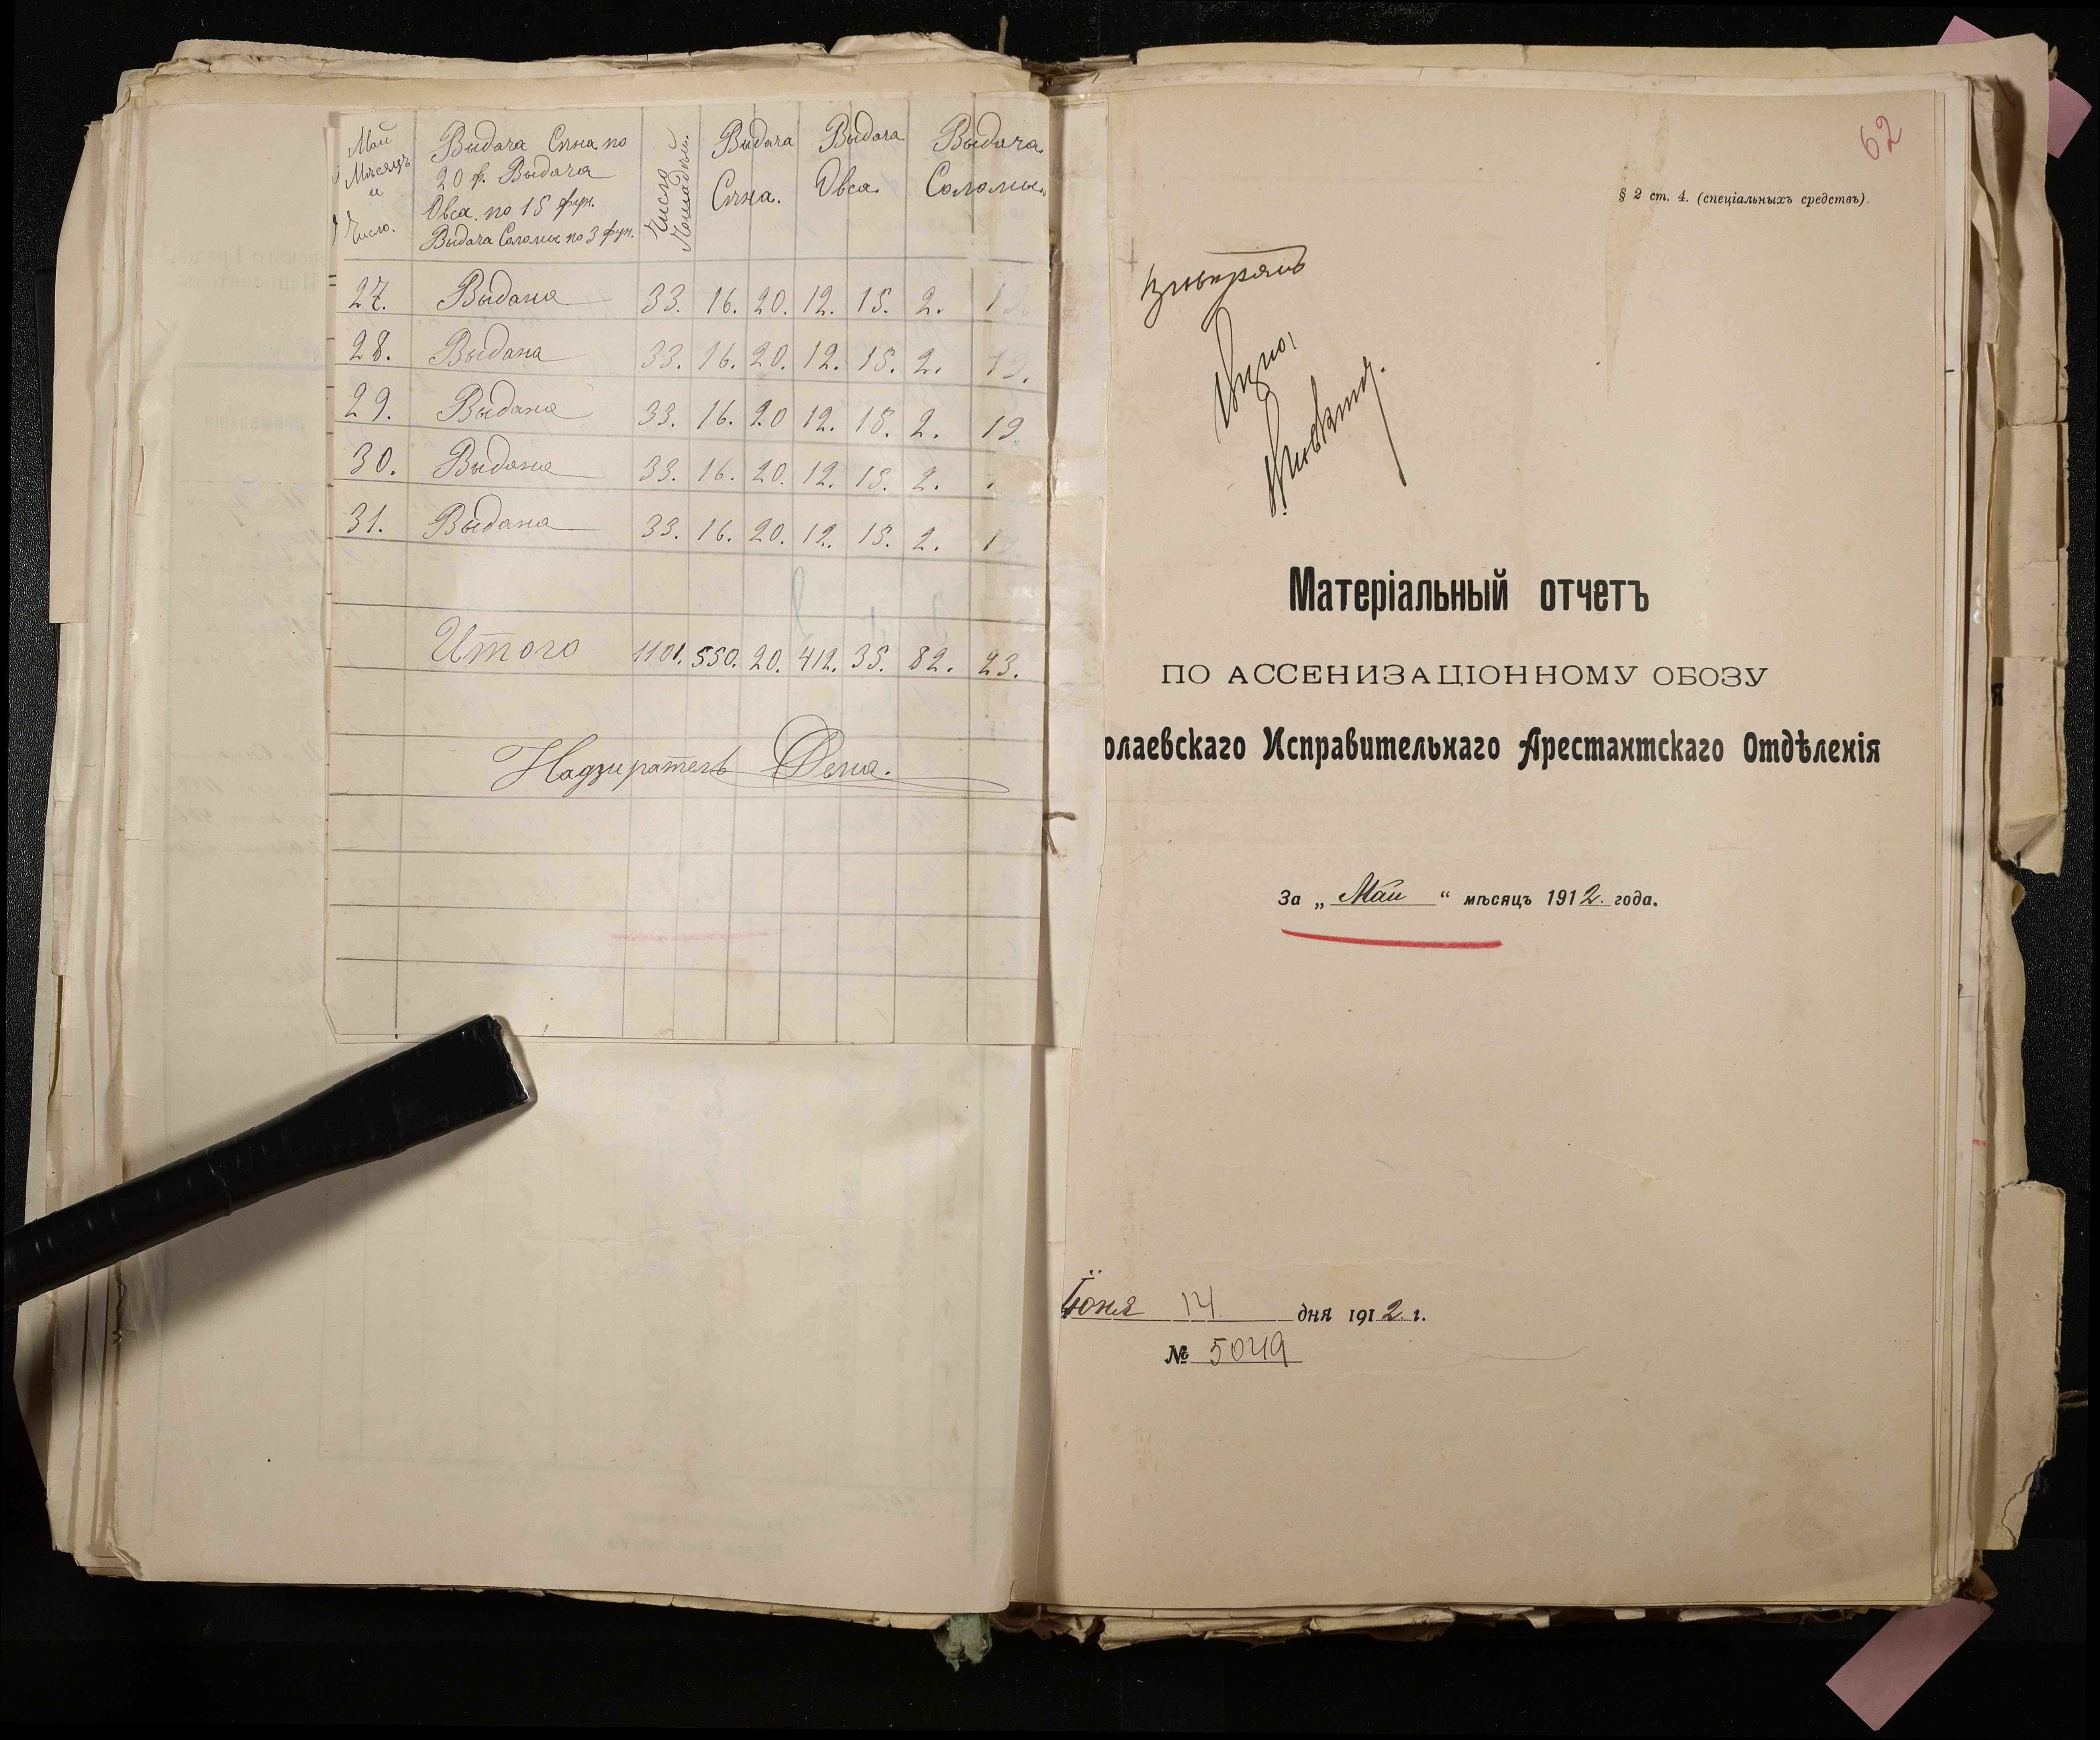 Май
Мѣсяцъ
и
Число.
Выдача Сѣна по
20 ф. Выдача
Овса. по 15 фун.
Выдача Соломы по 3 фун.
Число
Лошадей.
Выдача
Сѣна.
Выдача
Овса.
Выдача
Соломы.
27. Выдана 33. 16. 20. 12. 15. 2. 19.
28. Выдана 33. 16. 20. 12. 15. 2. 19.
29. Выдана 33. 16. 20 12. 15. 2. 19
30. Выдана 33. 16. 20. 12. 15. 2.
31. Выдана 33. 16. 20. 12. 15. 2. 1
Итого 1101. 550. 20. 412. 35. 82. 23.
Надзиратель
62
§ 2 ст. 4. (спеціальныхъ средствъ).
Матеріальный отчетъ
ПО АССЕНИЗАЦІОННОМУ ОБОЗУ
олаевскаго Исправительнаго Арестантскаго Отдѣленія
За „ Май “ мѣсяцъ 1912. года.
Іюня 14 дня 1912 г.
№ 5049